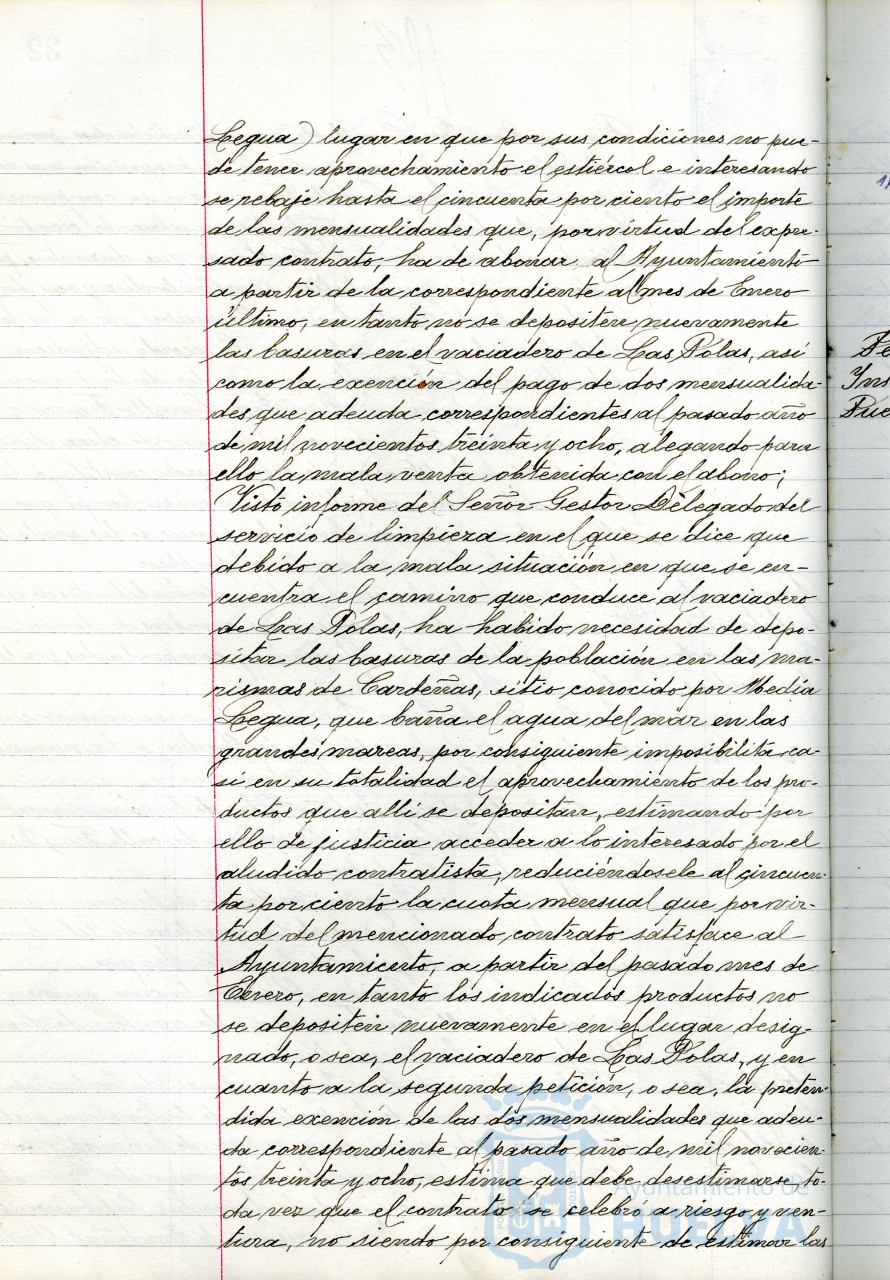 Legua) lugar en que por sus condiciones no pue-
de tener aprovechamiento el estiércol e interesando
se rebaje hasta el cincuenta por ciento el importe
de las mensualidades que, por virtud del expre-
sado contrato, ha de abonar al Ayuntamiento
a partir de la correspondiente al mes de Enero
último, en tanto no se depositen nuevamente
las basuras en el vaciadero de Las Polas, así
como la exención del pago de dos mensualida-
des que adeuda correspondientes al pasado año
de mil novecientos treinta y ocho, alegando para
ello la mala venta obtenida con el abono;
Visto informe del Señor Gestor Delegado del
servicio de limpieza en el que se dice que
debido a la mala situación en que se en-
cuentra el camino que conduce al vaciadero
de Las Polas, ha habido necesidad de depo-
sitar las basuras de la población en las ma-
rismas de Cardeñas, sitio conocido por Media
Legua, que baña el agua del mar en las
grandes mareas, por consiguiente imposibilita ca-
si en su totalidad el aprovechamiento de los pro-
ductos que allí se depositan, estimando por
ello de justicia acceder a lo interesado por el
aludido contratista, reduciéndosele al cincuen-
ta por ciento la cuota mensual que por vir-
tud del mencionado contrato satisface al
Ayuntamiento, a partir del pasado mes de
Enero, en tanto los indicados productos no
se depositen nuevamente en el lugar desig-
nado, o sea, el vaciadero de Las Polas, y en
cuanto a la segunda petición, o sea, la preten-
dida exención de las dos mensualidades que adeu-
da correspondiente al pasado año de mil novecien-
tos treinta y ocho, estima que debe desestimarse to-
da vez que el contrato se celebró a riesgo y ven-
tura, no siendo por consiguiente de estimar las
Ayuntamiento de
HUELVA